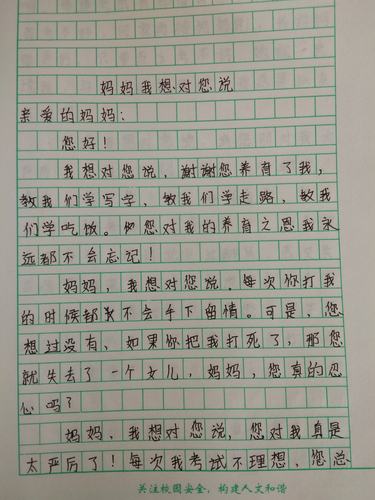 妈妈我想对您说
亲爱的妈妈：
您好！
我想对您说，谢谢您养育了我，
教我们学写字，教我们学走路，教我
们学吃饭。您对我的养育之恩我永
远都不会忘记！
妈妈，我想对您说。每次你打我
的时候都不会手下留情。可是，您
想过没有、如果你把我打死了，那您
就失去了一个女儿，妈妈，您真的忍
心吗？
妈妈，我想对您说，您对我真是
太严厉了！每次我考试不理想，您总
关注校园安全，构建人文和谐